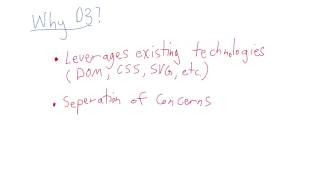 Why D3?
• Leverages existing technologies
(DOM, CSS, SVG, etc.)
• Seperation of Concerns